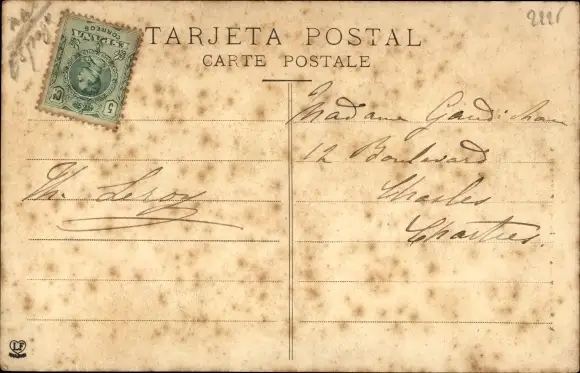 2221
TARJETA POSTAL
CARTE POSTALE
CORREOS
5
Madame
12 Boulevard
Charles
Chartres.
Th. Leroy
LF